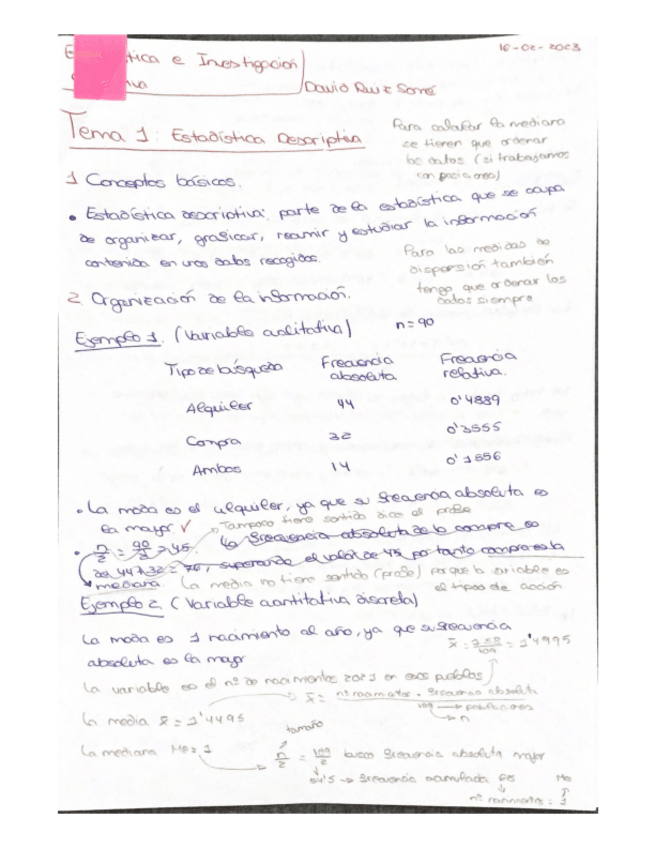 16-02-2023
tica e Investigación
David Ruiz
Tema 1: Estadística Descriptiva
Para calcular la mediana
se tienen que ordenar
los datos (si trabajamos
con posiciones)
1 Conceptos básicos.
• Estadística descriptiva: parte de la estadística que se ocupa
de organizar, graficar, resumir y estudiar la información
contenida en unos datos recogidos.
Para las medidas de
dispersión también
tengo que ordenar los
datos siempre
2 Organización de la información.
Ejemplo 1. (Variable cualitativa) n=90
Tipo de búsqueda Frecuencia absoluta Frecuencia relativa.
Alquiler 44 0'4889
Compra 32 0'3555
Ambos 14 0'1556
• La moda es el alquiler, ya que su frecuencia absoluta es
la mayor. ✓ Tampoco tiene sentido dice el profe
• n/2 = 90/2 = 45. La frecuencia absoluta de la compra es
de 44+32 = 76, superando el valor de 45 por tanto compra es la
mediana. La media no tiene sentido (profe) porque la variable es
el tipos de acción
Ejemplo 2. (Variable cuantitativa discreta)
La moda es 1 nacimiento al año, ya que su frecuencia
absoluta es la mayor
La variable es el nº de nacimientos 2021 en esos pueblos
x̄ = nº nacimientos · frecuencia absoluta
109 → poblaciones
→ n
La media x̄ = 1'4495
tamaño
La mediana Me = 1 → n/2 = 109/2 busco frecuencia absoluta mayor
54'5 → frecuencia acumulada Me
nº nacimientos = 1